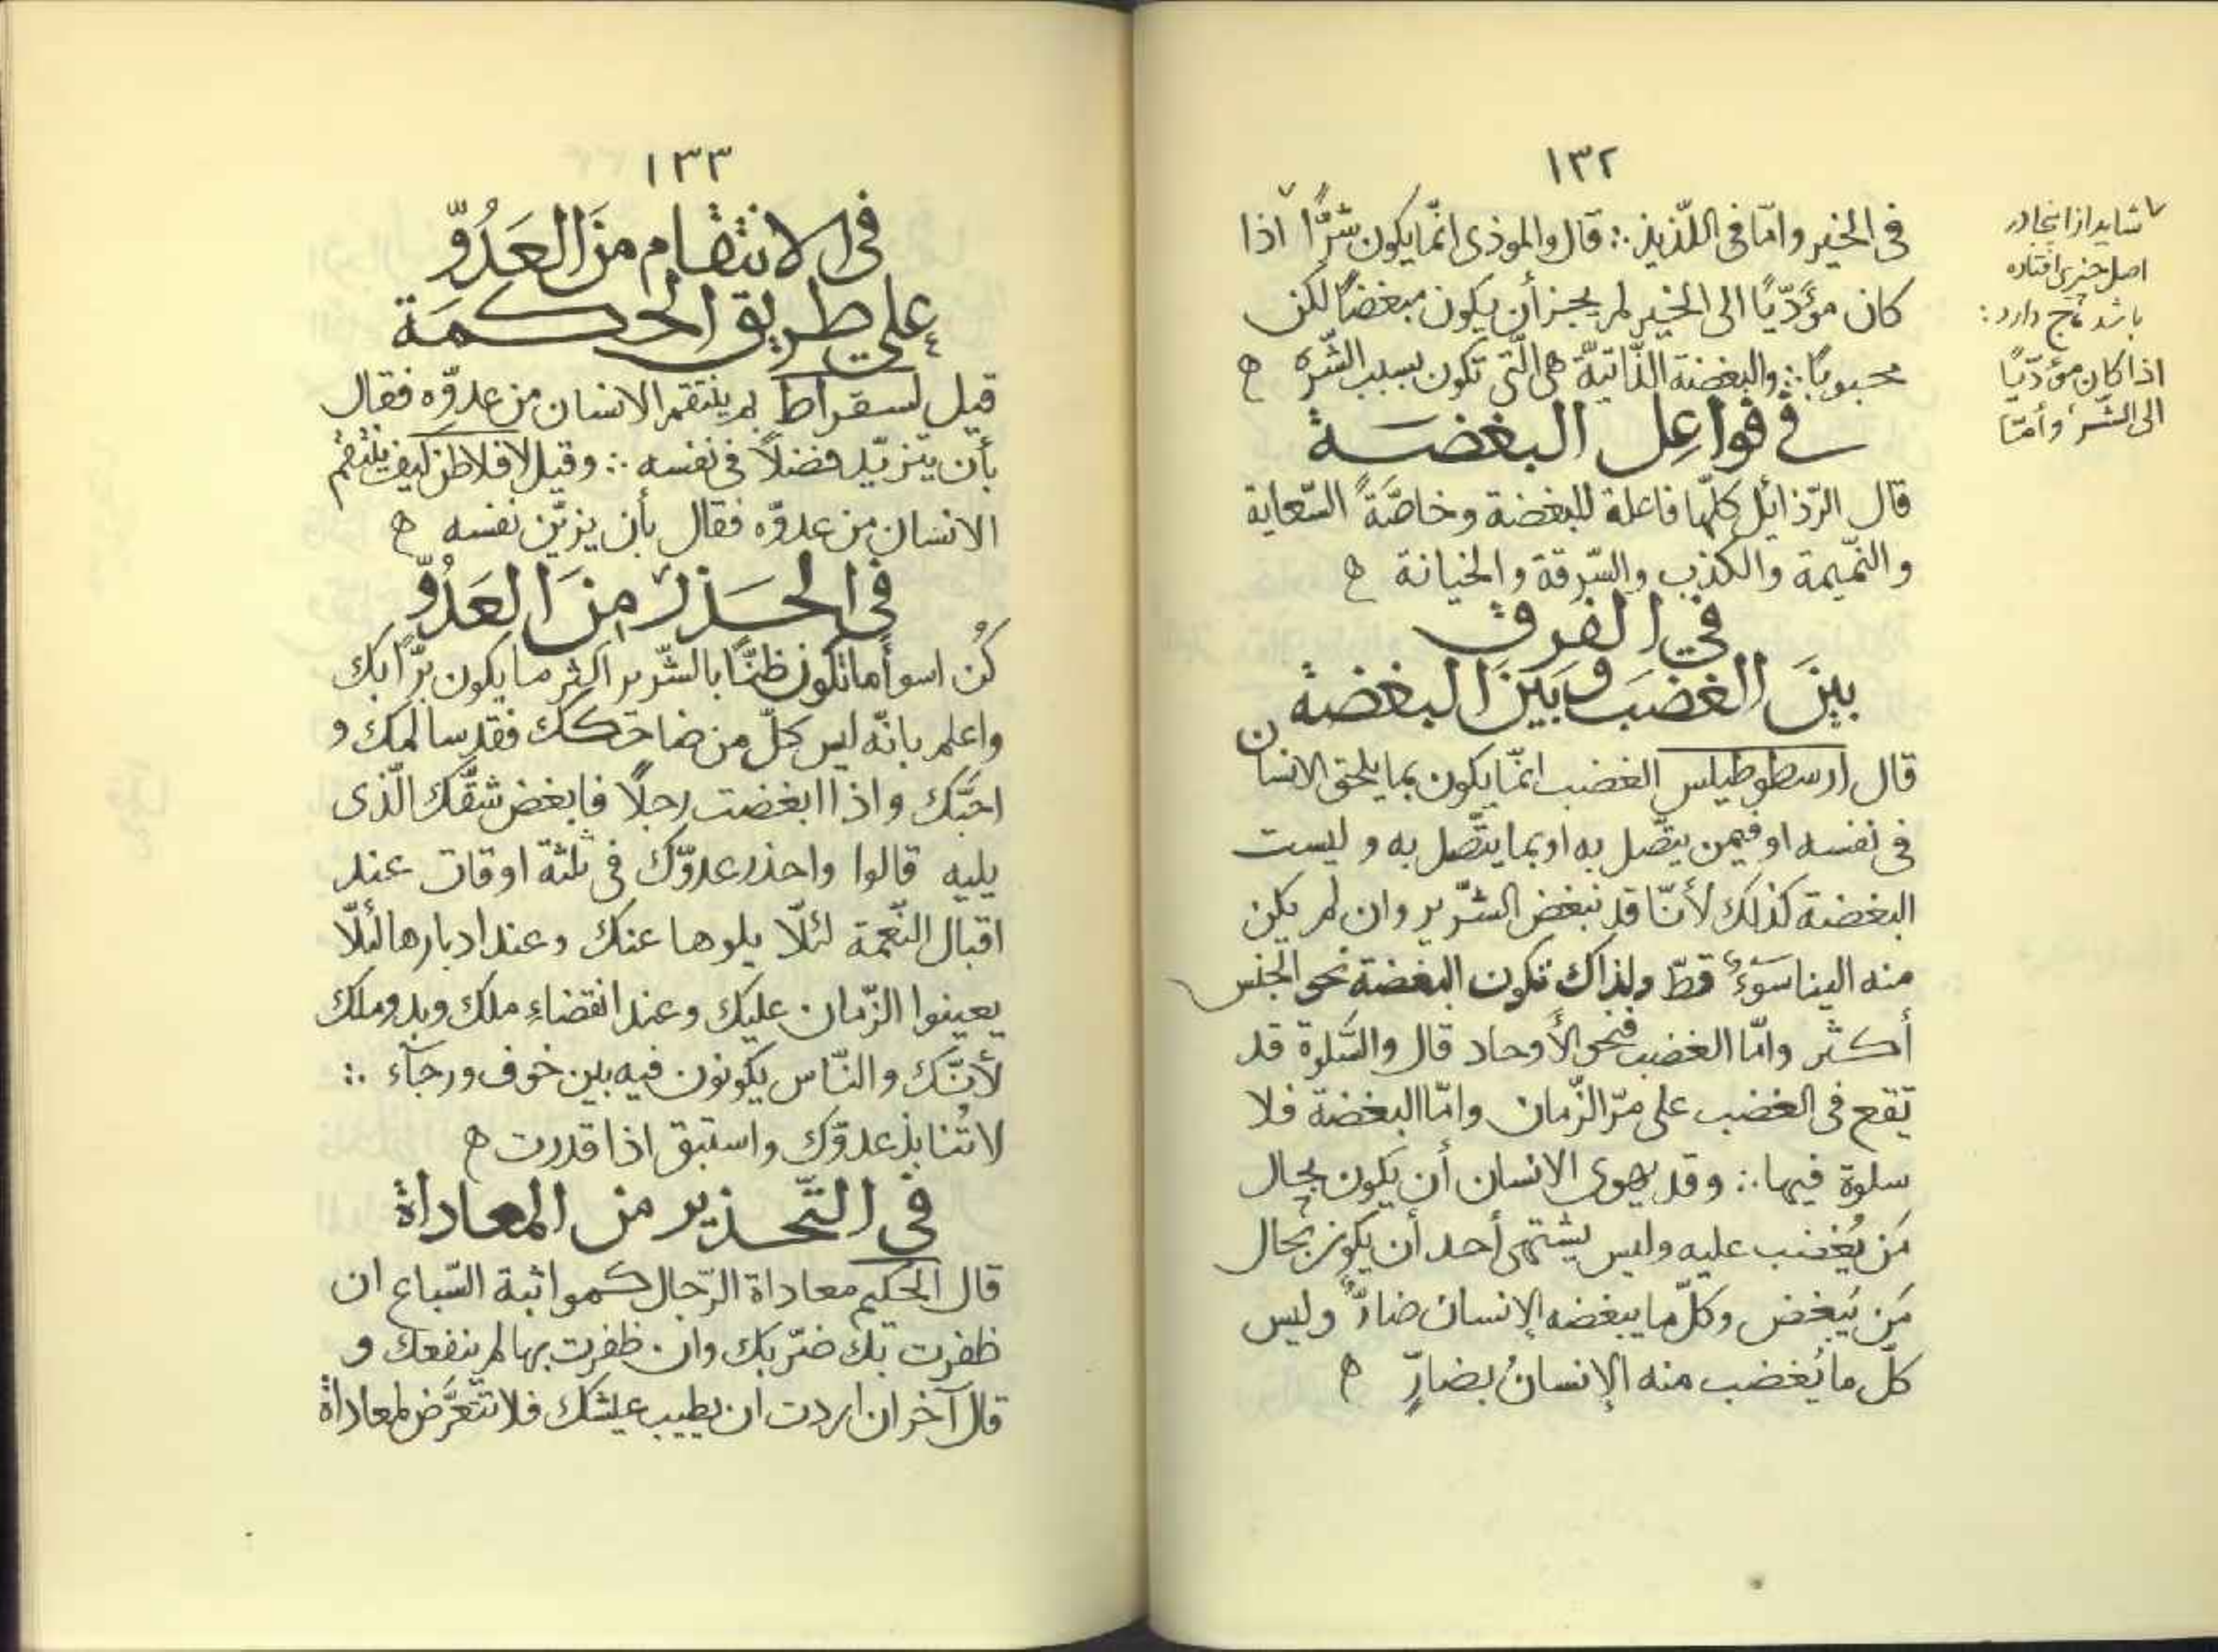 ١٣٢
فى الخير وامّا فى اللّذيذ ∴ قال والموذى انّما يكون شرًّا ٧ اذا
كان مؤدّيًا الى الخير لم يجز أن يكون مبغضًا لكن
محبوبًا ∴ والبغضة الذّاتيّة هى الّتى تكون بسبب الشّره ه
فى فواعل البغضة
قال الرّذائل كلّها فاعلة للبغضة وخاصّةً السّعاية
والنّميمة والكذب والسّرقة والخيانة ه
في الفرق
بينَ الغضَب وبَينَ البغضة
قال ارسطوطيلس الغضب انمّا يكون بما يلحق الانسان
فى نفسه او فيمن يتّصل به او بما يتّصل به و ليست
البغضة كذلك لأنّا قد نبغض الشّرير وان لم يكن
منه الينا سَوءٌ قطّ ولذاك تكون البغضة نحو الجنس
أكثر وامّا الغضب فنحو الأوحاد قال والسَّلوة قد
تقع فى الغضب على مرّ الزّمان وامّا البغضة فلا
سلوة فيها ∴ وقد يهوى الانسان أن يكون بحال
مَن يُغضب عليه وليس يشتهى أحد أن يكون بحال
مَن يُبغض وكلّ ما يبغضه الإنسان ضارٌّ وليس
كلّ ما يُغضب منه الإنسانُ بضارٍّ ه
٧ شايد از اينجا در
اصل چيزى افتاده
باشد ج دارد :
اذا كان مؤدّيًا
الى الشّر وأمّا
١٣٣
فى الانتقام منَ العَدُوّ
على طريق الحكمَة
قيل لسقراط بم ينتقم الانسان من عدوّه فقال
بأن يتزيّد فضلاً فى نفسه ∴ وقيل لافلاطن كيف ينتقم
الانسان من عدوّه فقال بأن يزيّن نفسه ه
فى الحَذر منَ العَدُوّ
كُن اسوأ ما تكون ظنًّا بالشّرير اكثر ما يكون برًّا بك
واعلم بانّه ليس كلّ من ضاحكك فقد سالمك و
احبّك واذا ابغضت رجلًا فابغض شقّك الّذى
يليه قالوا واحذر عدوّك فى ثلثة اوقات عند
اقبال النّعمة لئلّا يلوها عنك وعند ادبارها لئلّا
يعينوا الزّمان عليك وعند انقضاءِ ملك وبدو ملك
لأنّك والنّاس يكونون فيه بين خوف ورجآء ∴
لا تُنابذ عدوّك واستبق اذا قدرت ه
فى التّحذير من المعاداة
قال الحكيم معاداة الرّجال كمواثبة السّباع ان
ظفرت بك ضرّبك وان ظفرت بها لم ينفعك و
قال آخر ان اردت ان يطيب عيشك فلا تتعرّض لمعاداة